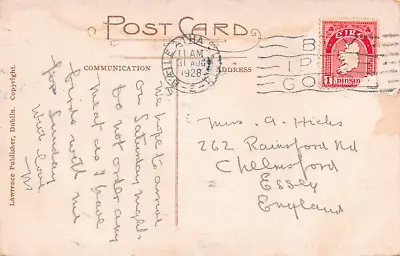 POST CARD
COMMUNICATION
ADDRESS
Lawrence Publisher, Dublin. Copyright.
BAILE ÁTHA
11 AM
31 AUG
1928
B
I P
G O
EIRE
1 PINGIN 1
We hope to arrive
on Saturday night.
Do not order any
meat as I have
with me
for Sunday
With love
M
Miss. A. Hicks
262 Rainsford Rd
Chelmsford
Essex
England